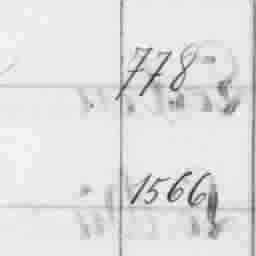 778
1566